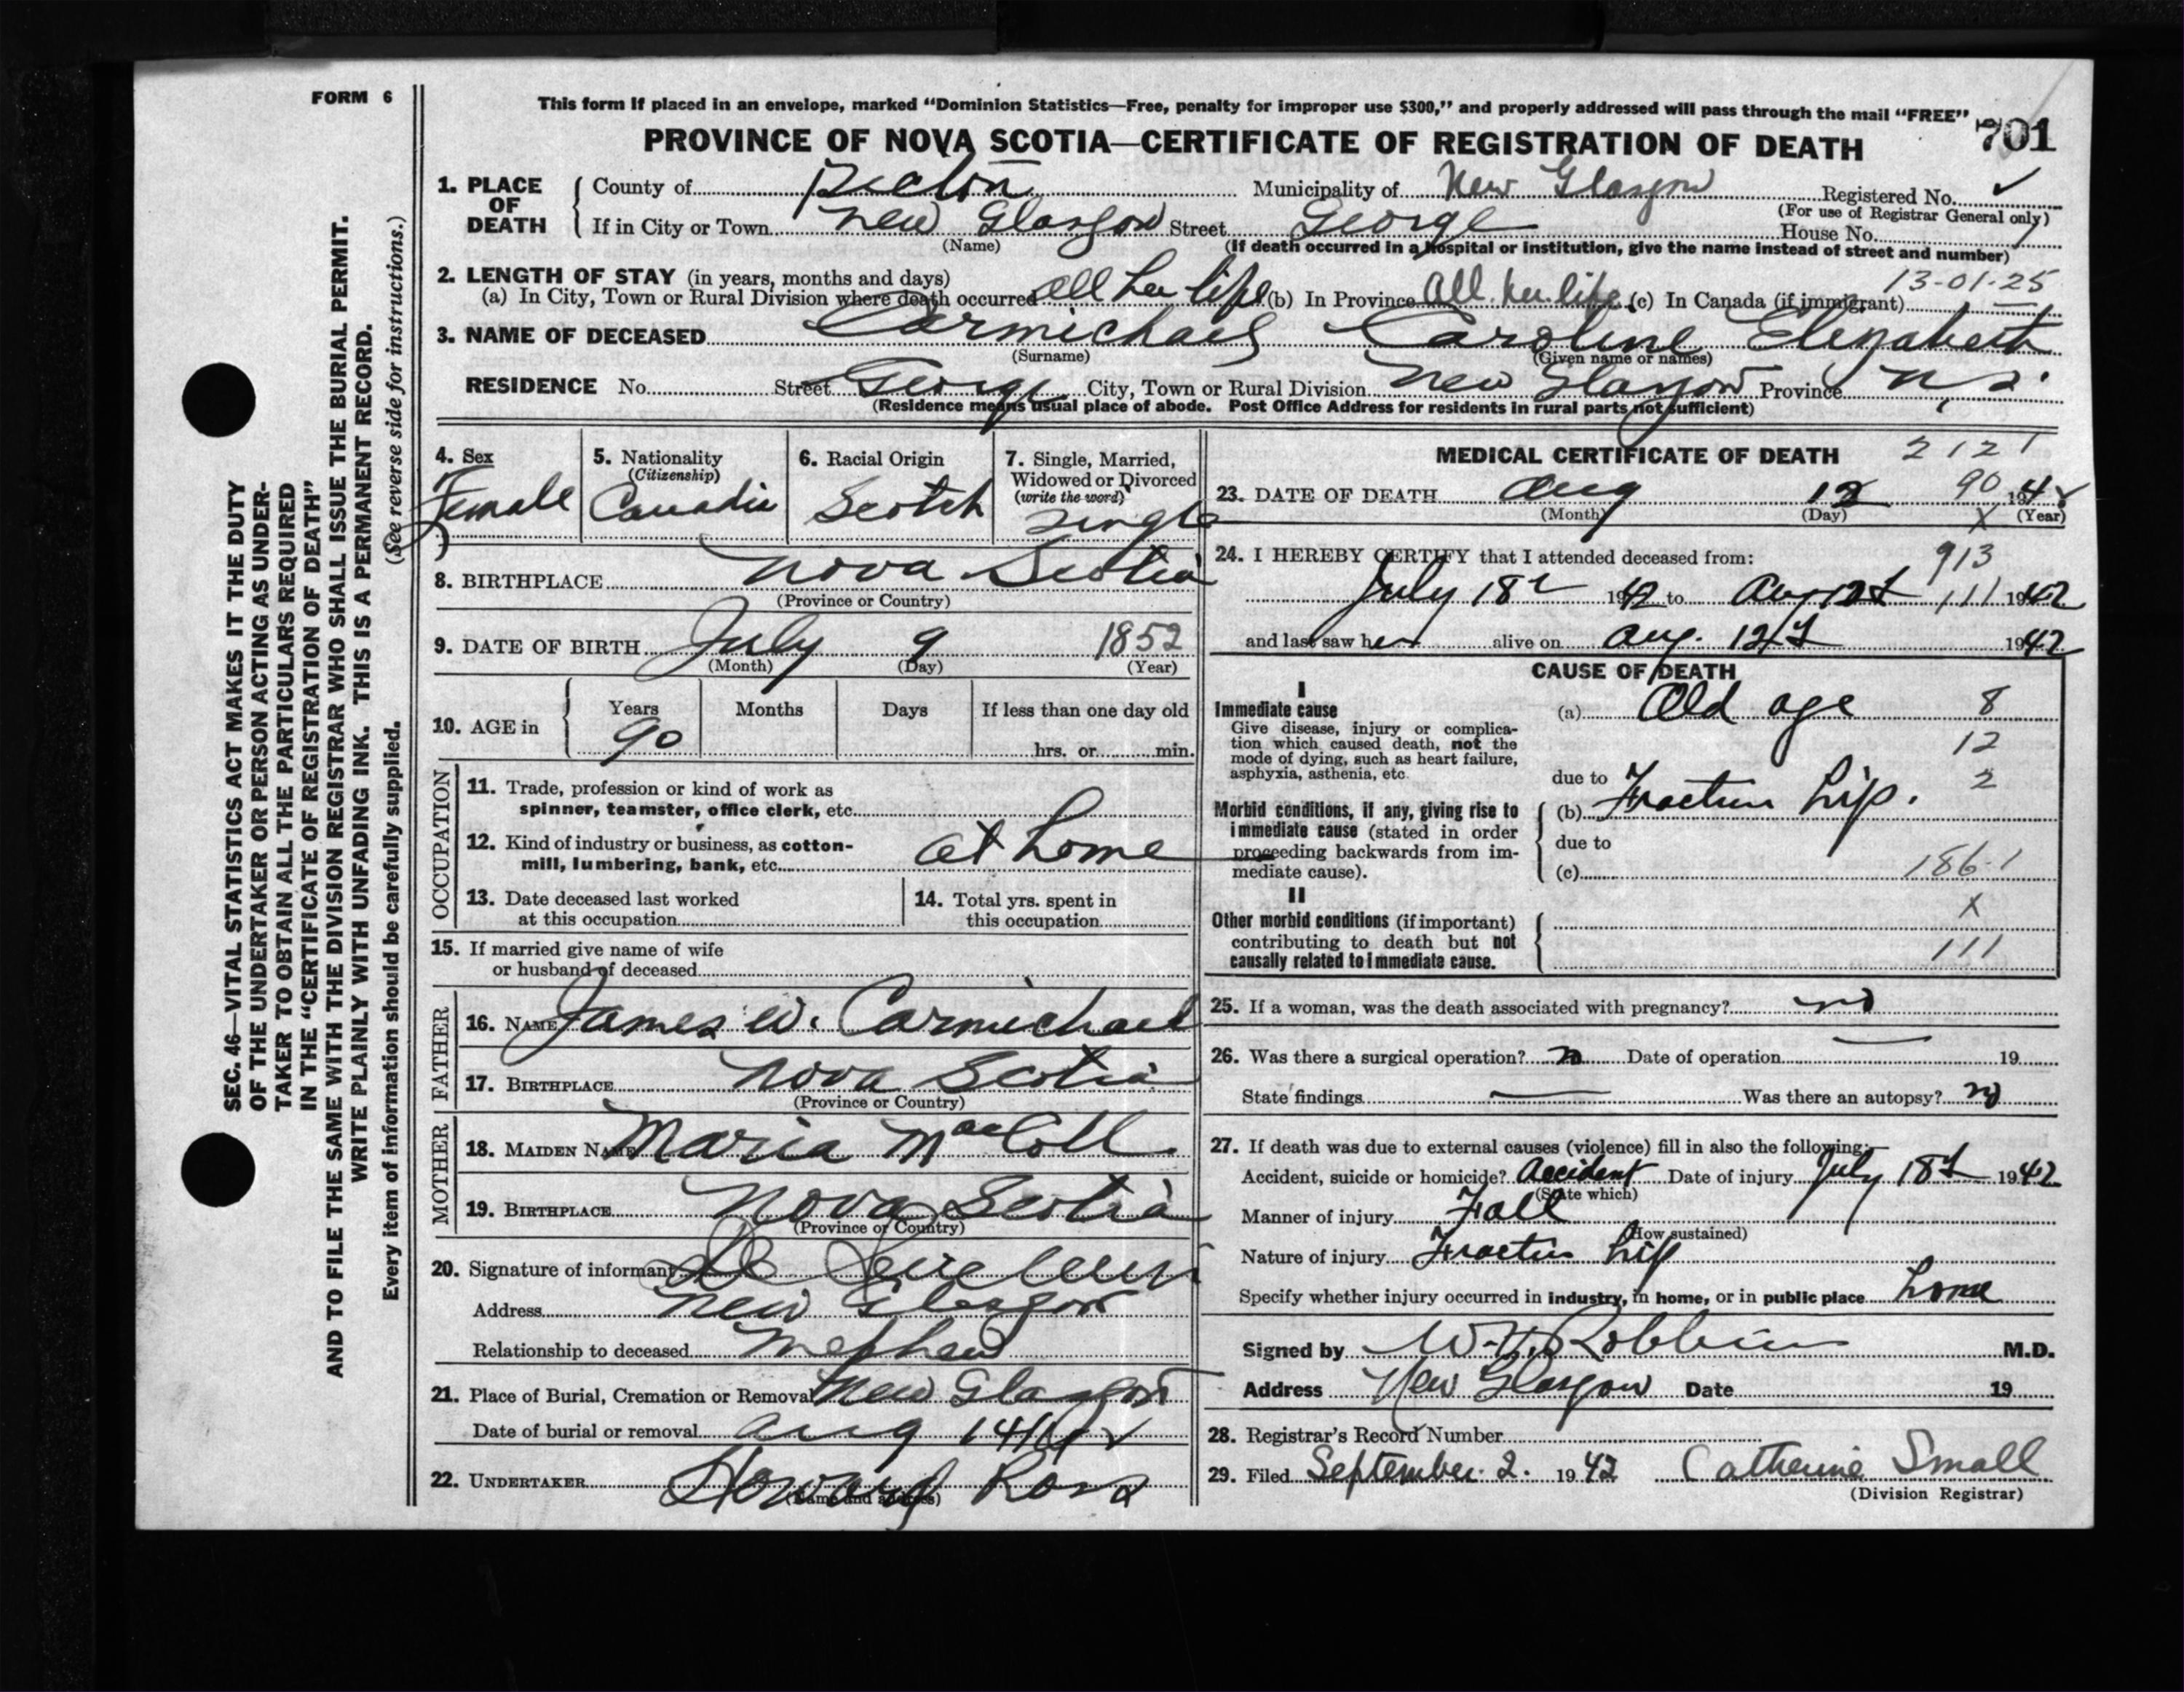 FORM 6
This form if placed in an envelope, marked "Dominion Statistics—Free, penalty for improper use $300," and properly addressed will pass through the mail "FREE"
PROVINCE OF NOVA SCOTIA—CERTIFICATE OF REGISTRATION OF DEATH 701
1. PLACE OF DEATH County of Pictou Municipality of New Glasgow Registered No. ✓
(For use of Registrar General only)
If in City or Town New Glasgow Street George House No.
(Name) (If death occurred in a hospital or institution, give the name instead of street and number)
2. LENGTH OF STAY (in years, months and days) 13-01-25
(a) In City, Town or Rural Division where death occurred all her life (b) In Province All her life (c) In Canada (if immigrant)
3. NAME OF DECEASED Carmichael Caroline Elizabeth
(Surname) (Given name or names)
RESIDENCE No. Street George City, Town or Rural Division New Glasgow Province N.S.
(Residence means usual place of abode. Post Office Address for residents in rural parts not sufficient)
4. Sex Female
5. Nationality (Citizenship) Canadia
6. Racial Origin Scotch
7. Single, Married, Widowed or Divorced (write the word) Single
8. BIRTHPLACE Nova Scotia
(Province or Country)
9. DATE OF BIRTH July 9 1852
(Month) (Day) (Year)
10. AGE in Years 90 Months Days If less than one day old hrs. or min.
OCCUPATION
11. Trade, profession or kind of work as spinner, teamster, office clerk, etc.
12. Kind of industry or business, as cotton-mill, lumbering, bank, etc. at home
13. Date deceased last worked at this occupation
14. Total yrs. spent in this occupation
15. If married give name of wife or husband of deceased
FATHER
16. NAME James W. Carmichael
17. BIRTHPLACE Nova Scotia
(Province or Country)
MOTHER
18. MAIDEN NAME Maria MacColl
19. BIRTHPLACE Nova Scotia
(Province or Country)
20. Signature of informant
Address New Glasgow
Relationship to deceased Nephew
21. Place of Burial, Cremation or Removal New Glasgow
Date of burial or removal Aug 14
22. UNDERTAKER Howard Ross
(Name and address)
MEDICAL CERTIFICATE OF DEATH 2121
23. DATE OF DEATH Aug 12 90 1942
(Month) (Day) X (Year)
24. I HEREBY CERTIFY that I attended deceased from: 913
July 18 1942 to Aug 12 111 1942
and last saw her alive on Aug. 12 1942
CAUSE OF DEATH
I
Immediate cause
Give disease, injury or complication which caused death, not the mode of dying, such as heart failure, asphyxia, asthenia, etc.
(a) Old age 8
12
due to 2
Morbid conditions, if any, giving rise to immediate cause (stated in order proceeding backwards from immediate cause).
(b) Fracture hip.
due to
(c) 186-1
X
II
Other morbid conditions (if important) contributing to death but not causally related to immediate cause.
111
25. If a woman, was the death associated with pregnancy? no
26. Was there a surgical operation? no Date of operation — 19
State findings — Was there an autopsy? no
27. If death was due to external causes (violence) fill in also the following:—
Accident, suicide or homicide? Accident Date of injury July 18 1942
(State which)
Manner of injury Fall
(How sustained)
Nature of injury Fracture hip
Specify whether injury occurred in industry, in home, or in public place home
Signed by Robbins M.D.
Address New Glasgow Date 19
28. Registrar's Record Number
29. Filed September 2. 1942 Catherine Small
(Division Registrar)
SEC. 46—VITAL STATISTICS ACT MAKES IT THE DUTY
OF THE UNDERTAKER OR PERSON ACTING AS UNDER-
TAKER TO OBTAIN ALL THE PARTICULARS REQUIRED
IN THE "CERTIFICATE OF REGISTRATION OF DEATH"
AND TO FILE THE SAME WITH THE DIVISION REGISTRAR WHO SHALL ISSUE THE BURIAL PERMIT.
WRITE PLAINLY WITH UNFADING INK. THIS IS A PERMANENT RECORD.
Every item of information should be carefully supplied. (See reverse side for instructions.)